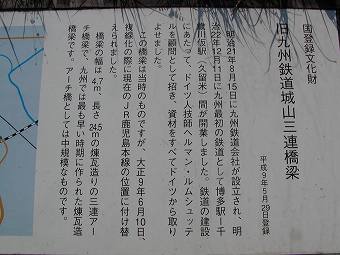 国登録文化財
旧九州鉄道城山三連橋梁
平成9年5月29日登録
明治21年8月15日に九州鉄道会社が設立され、明
治22年12月11日に九州最初の鉄道として博多駅ー千
歳川仮駅（久留米）間が開業しました。鉄道の建設
にあたって、ドイツ人技師ヘルマン・ルムシュッテ
ルを顧問として招き、資材をすべてドイツから取り
よせました。
この橋梁は当時のものですが、大正9年6月10日、
複線化の際に現在のJR鹿児島本線の位置に付け替
えられました。
橋梁の幅は4.7m、長さ24.5mの煉瓦造りの三連アー
チ橋梁で、九州では最も早い時期に作られた煉瓦造
橋梁です。アーチ橋としては中規模なものです。